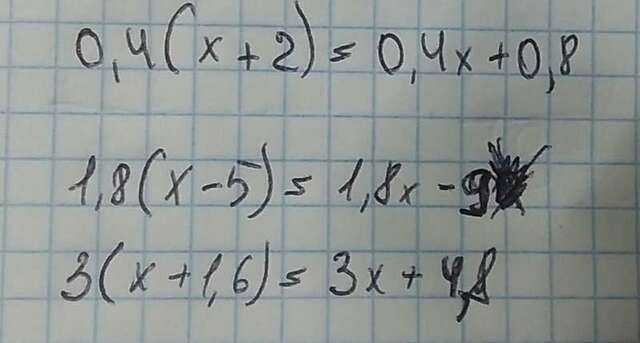 0,4(x+2)=0,4x+0,8
1,8(x-5)=1,8x-9
3(x+1,6)=3x+4,8